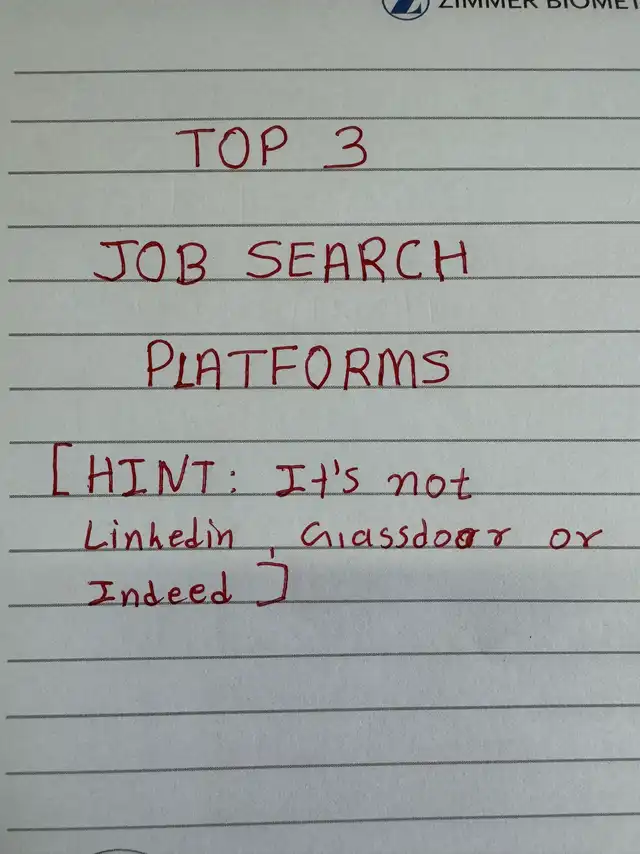 ZIMMER BIOMET
TOP 3
JOB SEARCH
PLATFORMS
[HINT: It's not
Linkedin, Glassdoor or
Indeed]